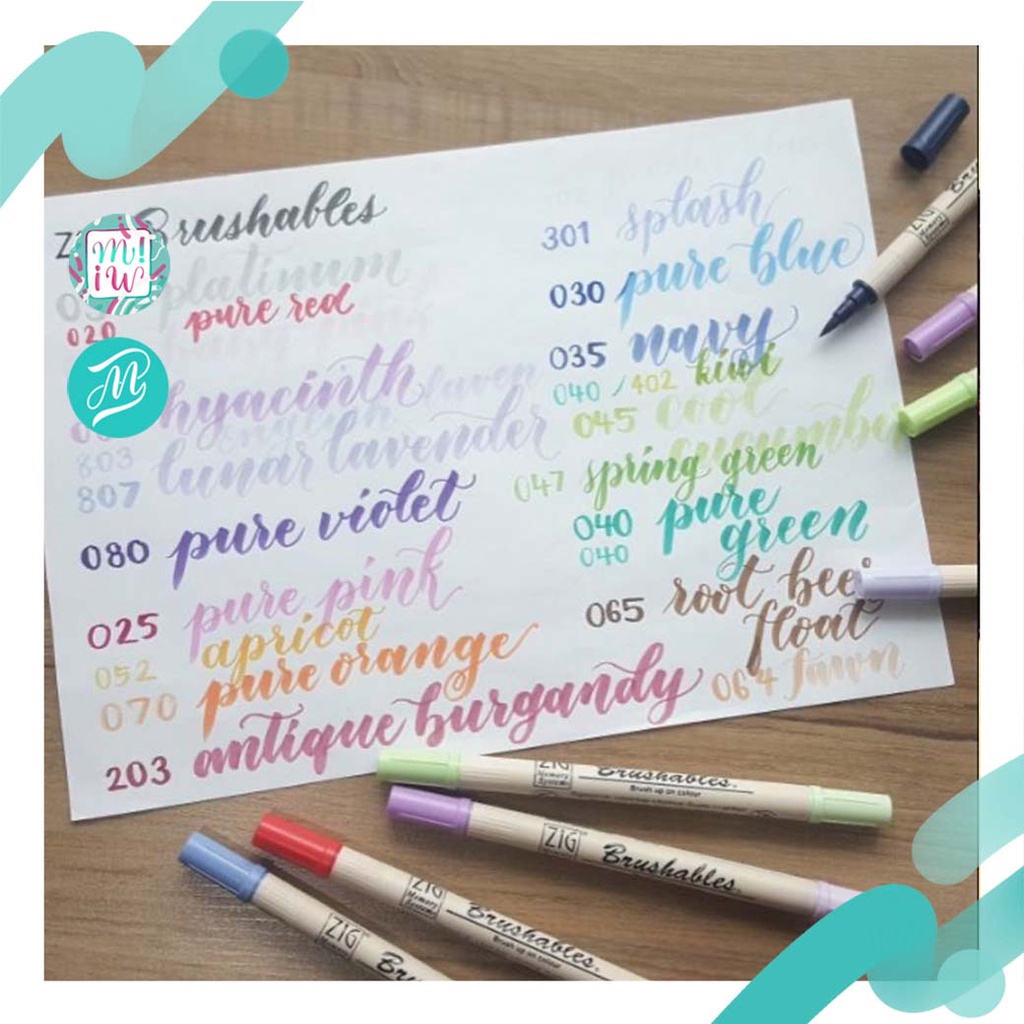 Brushables
platinum
020 pure red
hyacinth
803
807 lunar lavender
080 pure violet
025 pure pink
052 apricot
070 pure orange
203 antique burgandy
301 splash
030 pure blue
035 navy
040 / 402 kiwi
045 cool
cucumber
047 spring green
040 pure
040 green
065 root beer
float
064 fawn
M!
iW
M
ZIG
ZIG
Memory
System
Brushables
Brush up on colour
ZIG
Brushables
ZIG
Memory
System
Brushables
Brush up on colour
ZIG